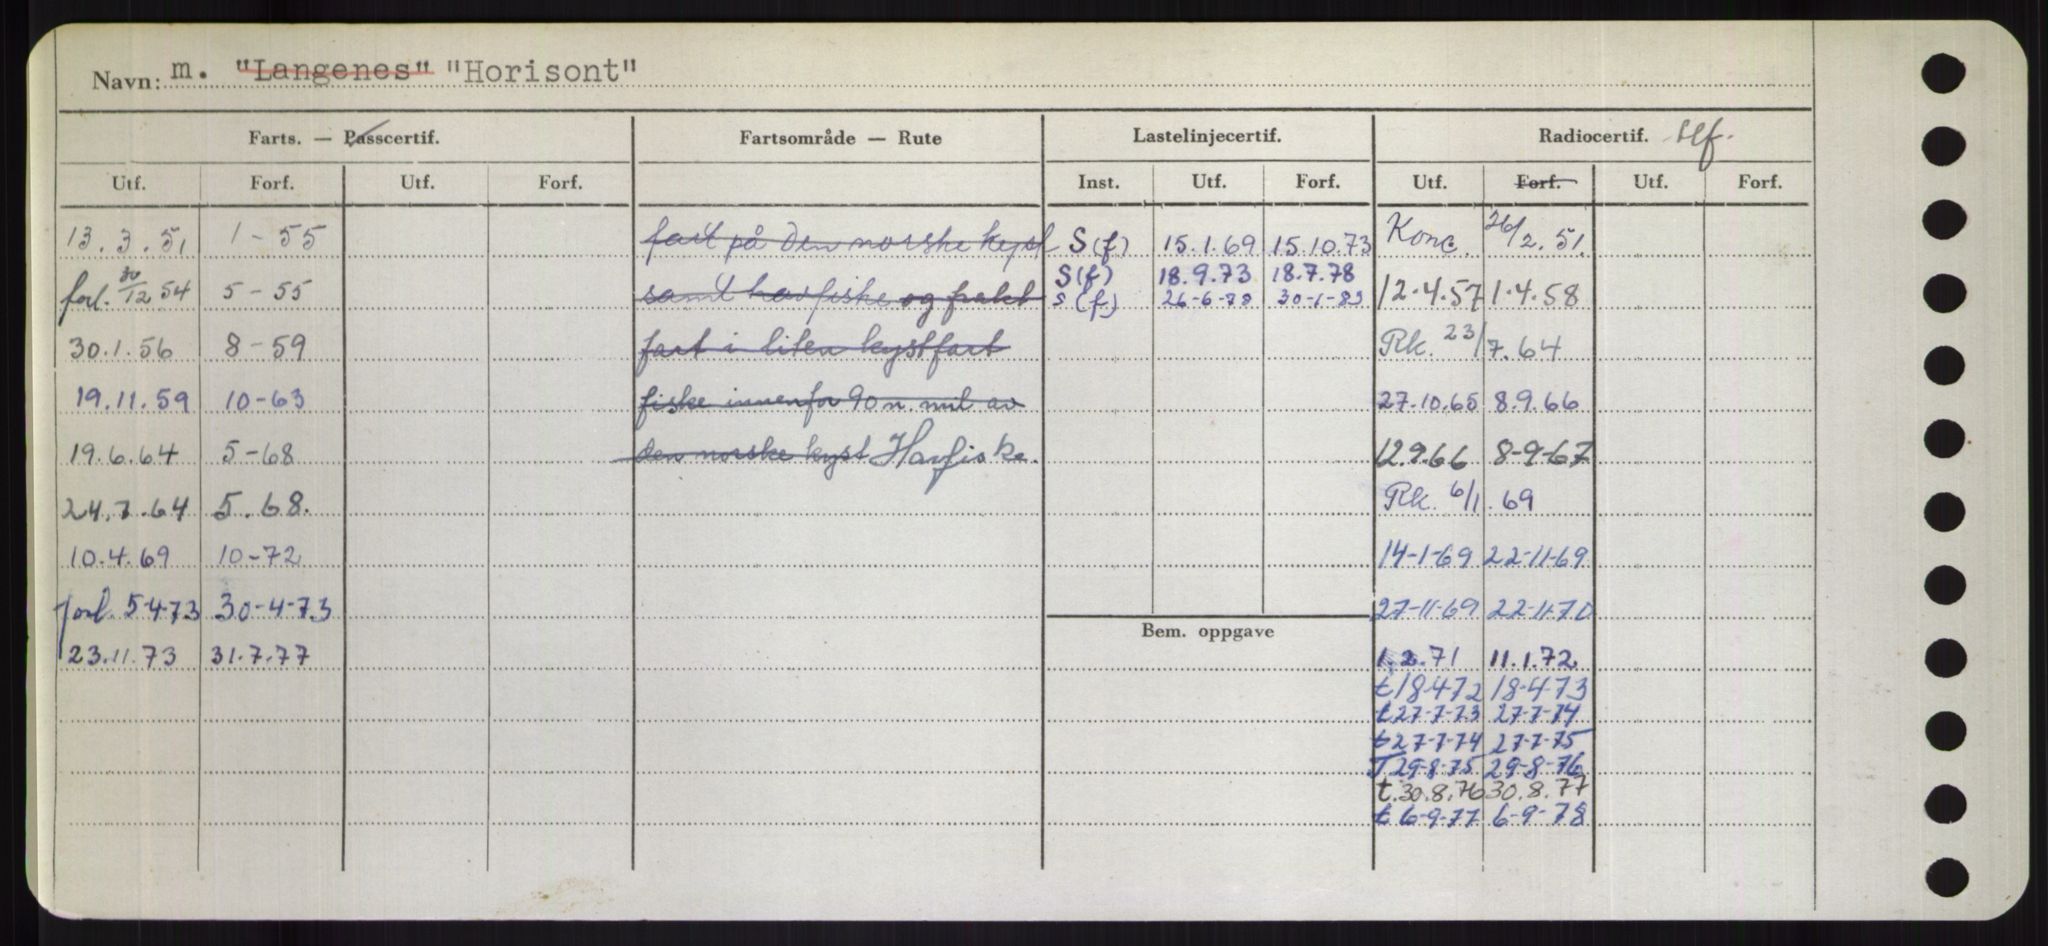 Navn: m. "Langenes" "Horisont"
Farts. — Passcertif. Fartsområde — Rute Lastelinjecertif. Radiocertif. tlf.
Utf. Forf. Utf. Forf. Inst. Utf. Forf. Utf. Forf. Utf. Forf.
13.3.51 1-55 fart på den norske kyst S(f) 15.1.69 15.10.73 Konc. 26/2.51.
S(f) 18.9.73 18.7.78
forl. 30/12 54 5-55 samt havfiske og frakt S(f) 26-6-78 30-1-83 12.4.57 1.4.58
30.1.56 8-59 fart i liten kystfart Rk. 23/7.64
19.11.59 10-63 fiske innenfor 90 n. mil av 27.10.65 8.9.66
19.6.64 5-68 den norske kyst Havfiske. 12.9.66 8-9-67
24.7.64 5.68. Rk. 6/1.69
10.4.69 10-72 14-1-69 22-11-69
forl. 5-4-73 30-4-73 27-11-69 22-11-70
Bem. oppgave
23.11.73 31.7.77 1.2.71 11.1.72
t 18-4-72 18-4-73
t 27-7-73 27-7-74
t 27-7-74 27-7-75
T 29-8-75 29-8-76
t. 30.8.76 30.8.77
t 6-9-77 6-9-78